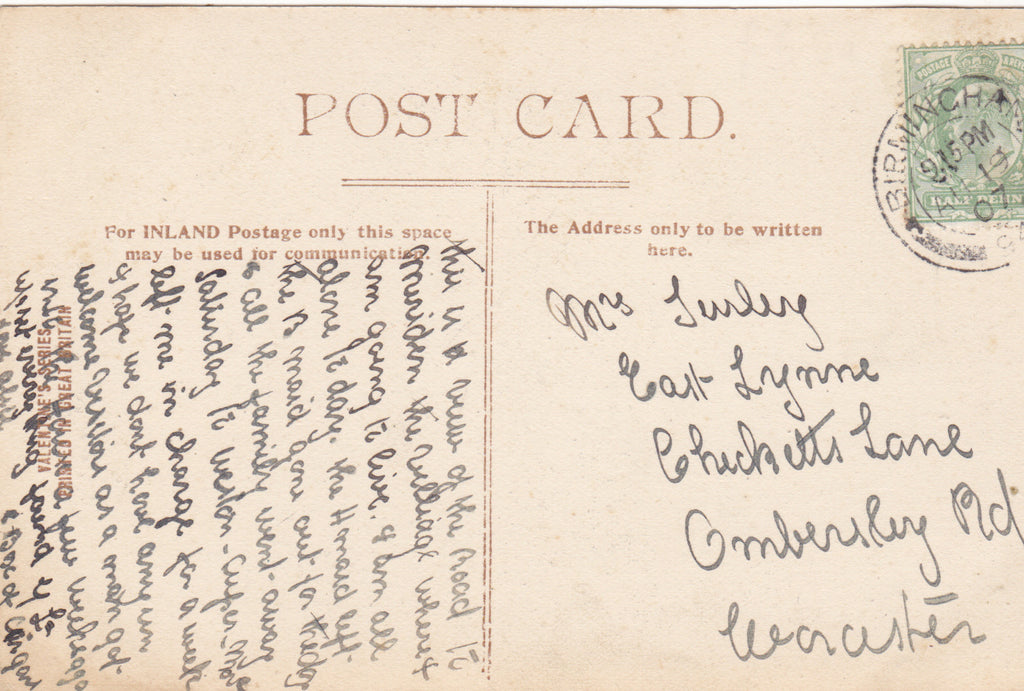 POST CARD.
For INLAND Postage only this space
may be used for communication.
The Address only to be written
here.
POSTAGE
BIRMINGHAM
9.15 PM
07
Mrs Turley
East Lynne
Checketts Lane
Ombersley Rd
Worcester
this is a view of the road to
Meriden the village where I
am going to live. I am all
alone to day. the H maid left
the B maid gone out for the day
& all the family went away
Saturday to Weston-super-Mare
left me in charge for a week
I hope we dont have any un
welcome visitors as a man got
in last week
VALENTINE'S SERIES
PRINTED IN GREAT BRITAIN